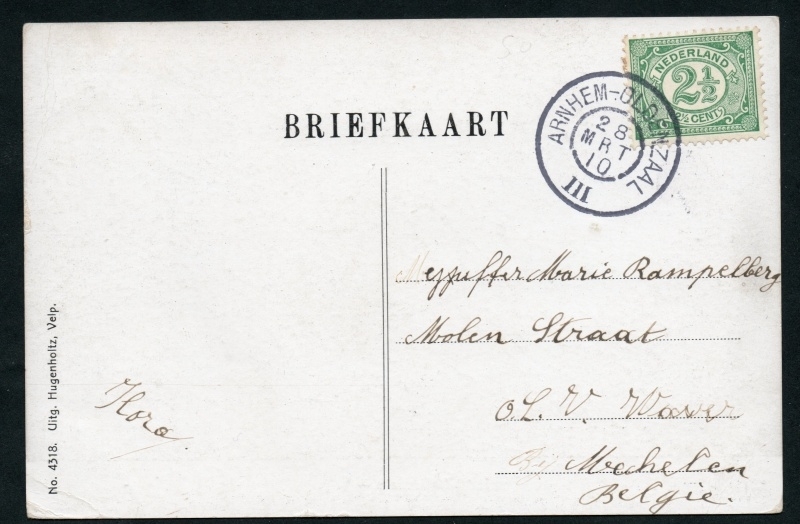 NEDERLAND
2½
2½ CENT
ARNHEM-OLDENZAAL
28
MRT
10
III
BRIEFKAART
Mejjuffer Marie Rampelberg
Molen Straat
O.L.V. Waver
Bij Mechelen
Belgie.
No. 4318. Uitg. Hugenholtz, Velp.